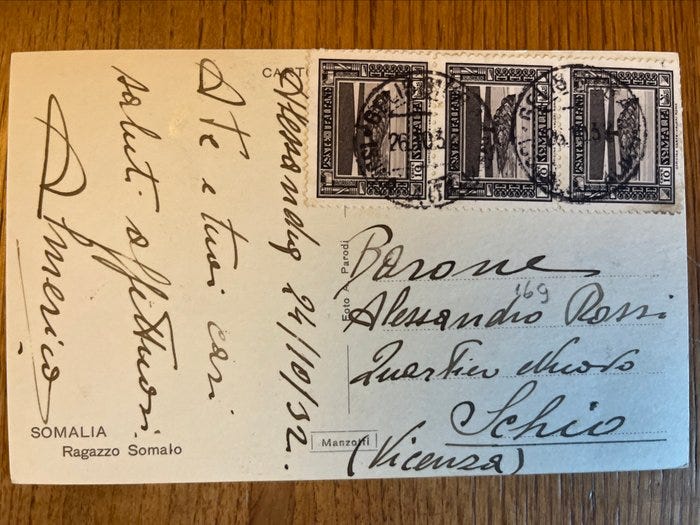 CARTO
POSTE ITALIANE
SOMALIA
POSTE ITALIANE
SOMALIA
POSTE ITALIANE
SOMALIA
26.10.3
Barone
Alessandro Rossi
169
Quartier Nuovo
Schio
(Vicenza)
24/10/32.
A Te e tuoi cari
saluti affettuosi.
Almerico
Foto A. Parodi
Manzotti
SOMALIA
Ragazzo Somalo